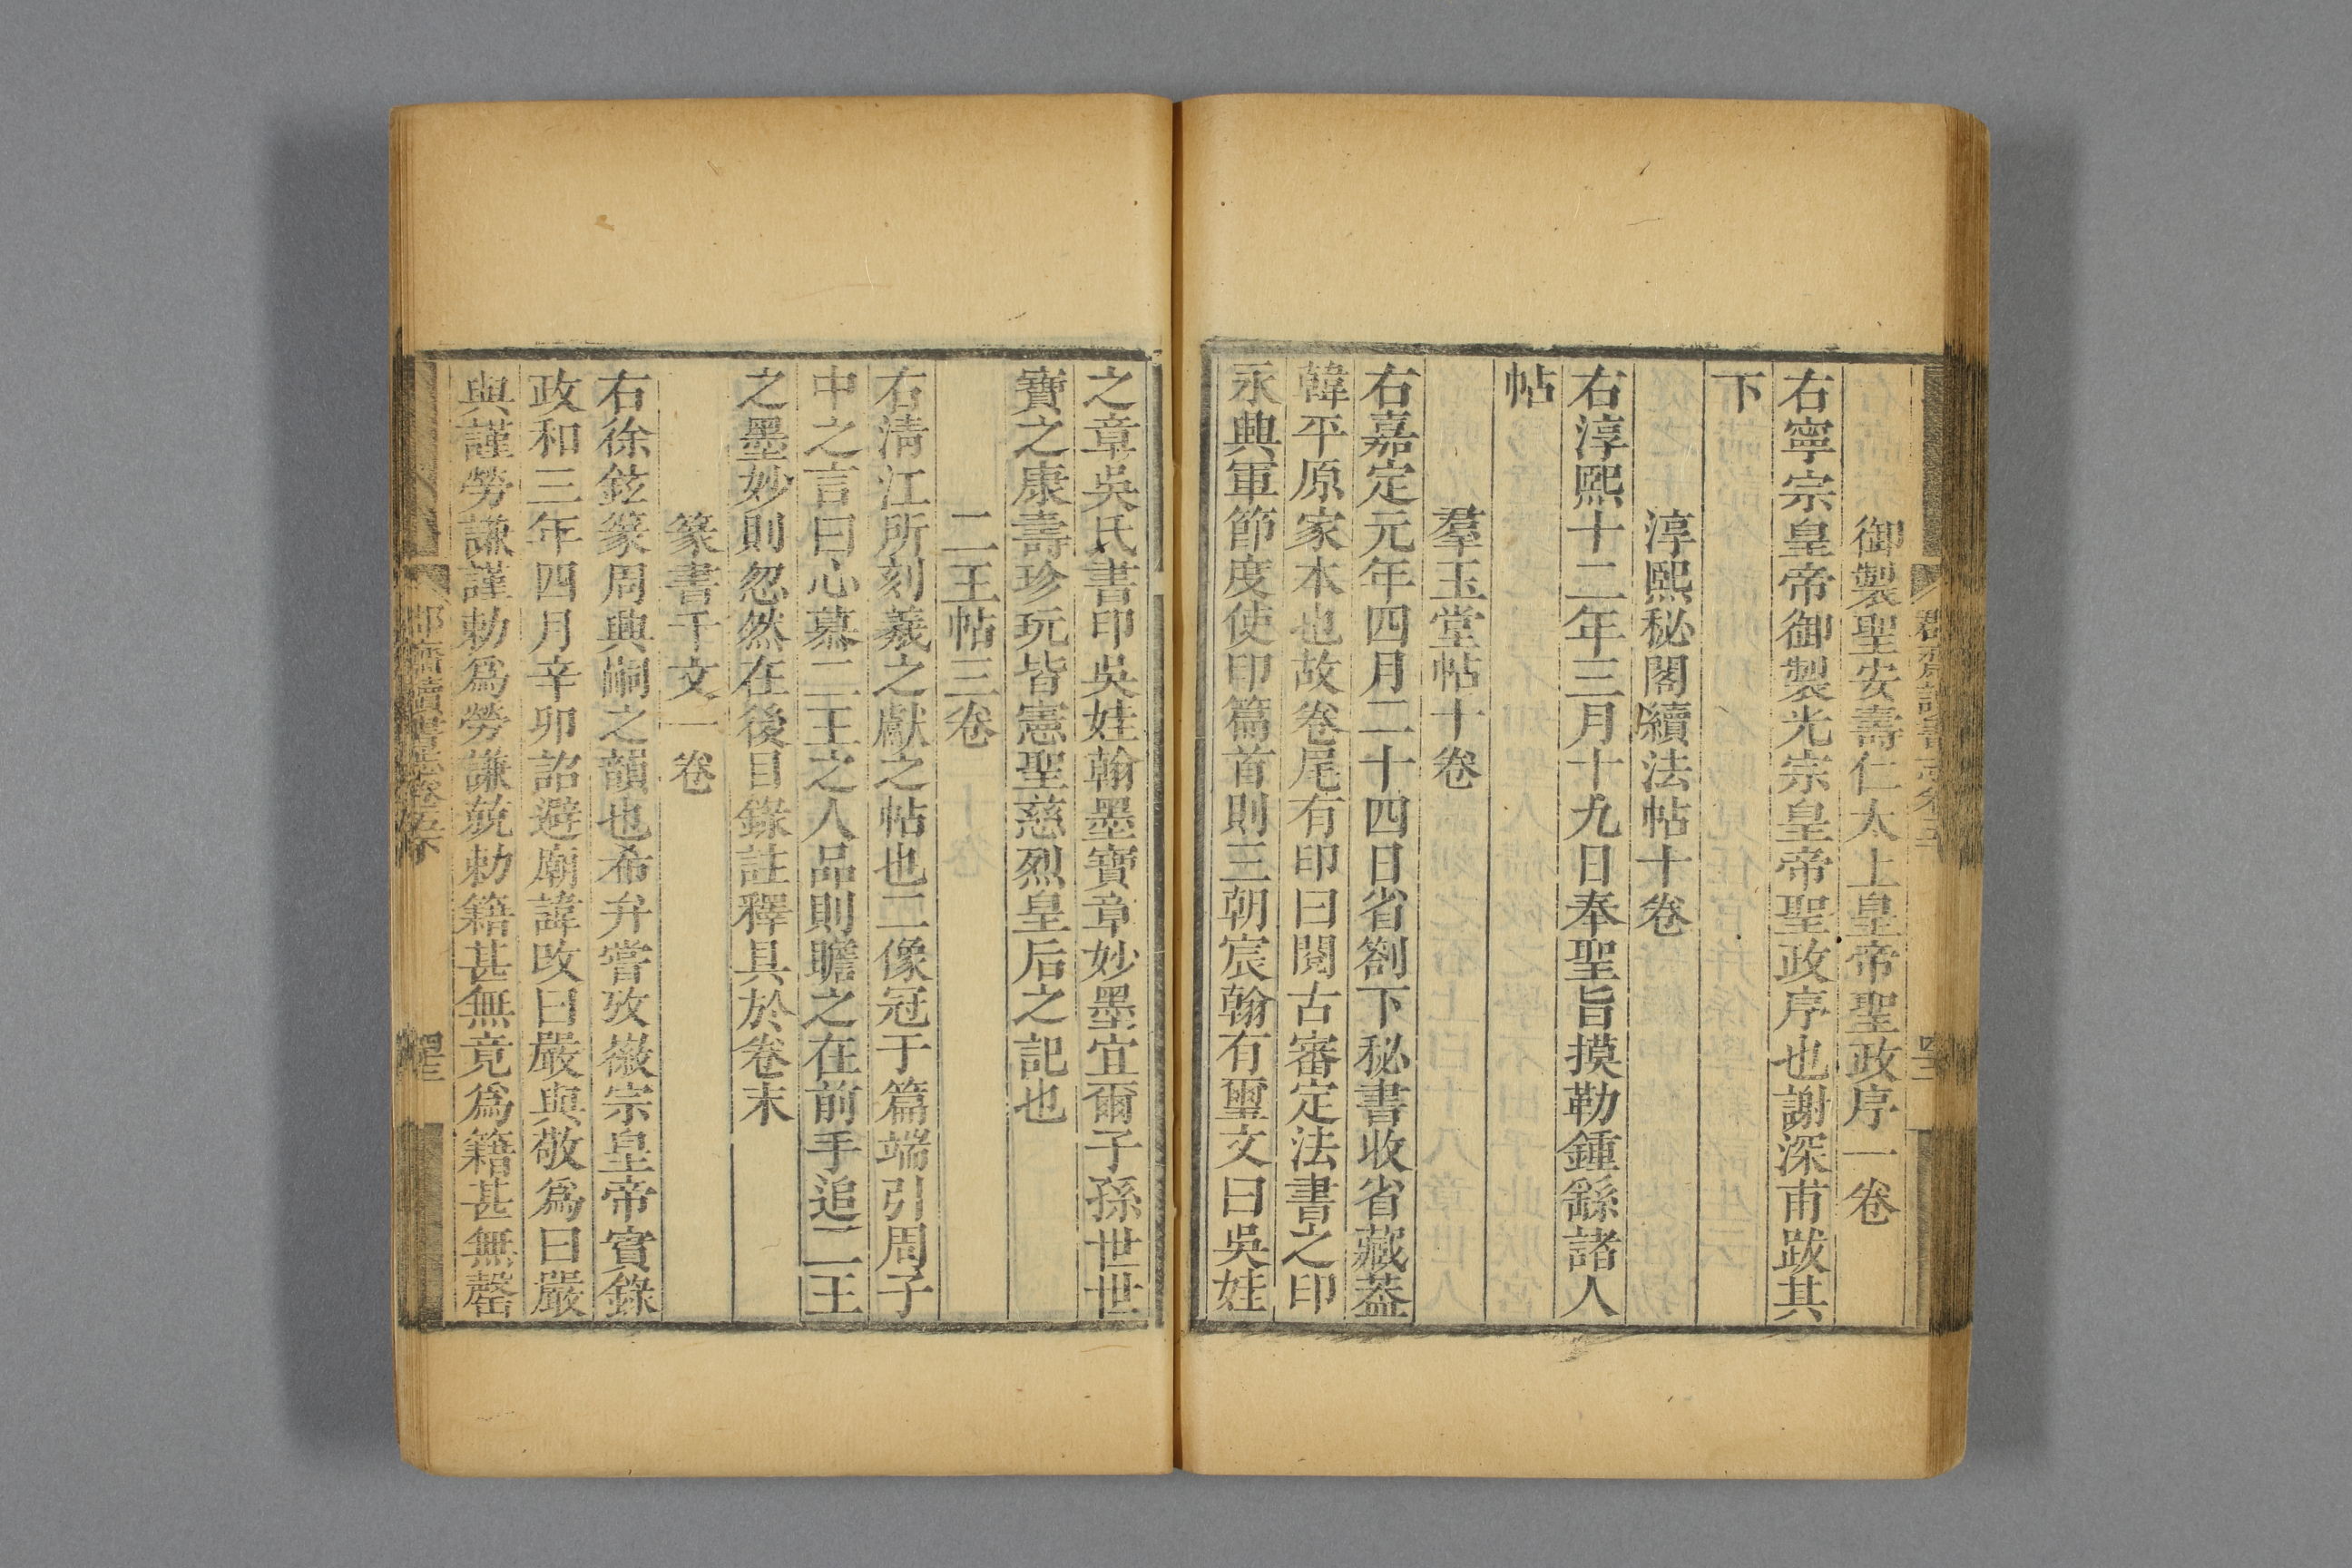 御製聖安壽仁太上皇帝聖政序一卷
右寧宗皇帝御製光宗皇帝聖政序也謝深甫跋其
下
淳熙秘閣續法帖十卷
右淳熙十二年三月十九日奉聖旨摸勒鍾繇諸人
帖
羣玉堂帖十卷
右嘉定元年四月二十四日省劄下秘書收省藏葢
韓平原家本也故卷尾有印曰閱古審定法書之印
永興軍節度使印篇首則三朝宸翰有璽文曰吳娃
之章吳氏書印吳娃翰墨寶章妙墨宜爾子孫世世
寶之康壽珍玩皆憲聖慈烈皇后之記也
二王帖三卷
右清江所刻羲之獻之帖也二像冠于篇端引周子
中之言曰心慕二王之人品則瞻之在前手追二王
之墨妙則忽然在後目錄註釋具於卷末
篆書千文一卷
右徐鉉篆周興嗣之韻也希弁嘗攷徽宗皇帝實錄
政和三年四月辛卯詔避廟諱改曰嚴與敬爲曰嚴
與謹勞謙謹勅爲勞謙兢勅籍甚無竟爲籍甚無罄